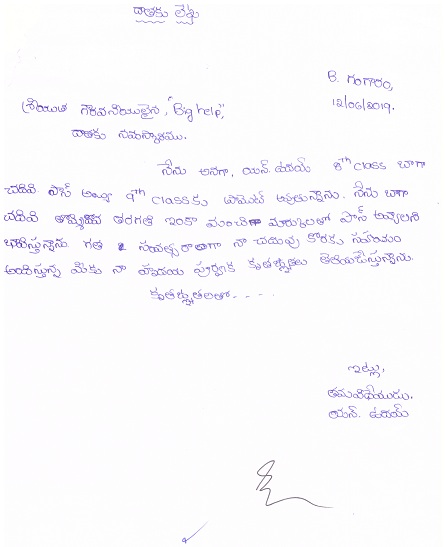 దాతకు లేఖ
B. గంగారం,
12/06/2019.
శ్రీయుత గౌరవనీయులైన "Big help",
దాతకు నమస్కారము.
నేను అనగా, యన్. ఉదయ్ 8th class బాగా
చదివి పాస్ అయ్యి 9th classకు ప్రమోట్ అవుతున్నాను. నేను బాగా
చదివి తొమ్మిదివ తరగతి ఇంకా మంచిగా మార్కులతో పాస్ అవ్వాలని
భావిస్తున్నాను. గత 2 సంవత్సరాలుగా నా చదువు కొరకు సహాయం
అందిస్తున్న మీకు నా హృదయ పూర్వక కృతజ్ఞతలు తెలియజేస్తున్నాను.
కృతజ్ఞతలతో. . . .
ఇట్లు,
తమవిధేయుడు.
యన్. ఉదయ్